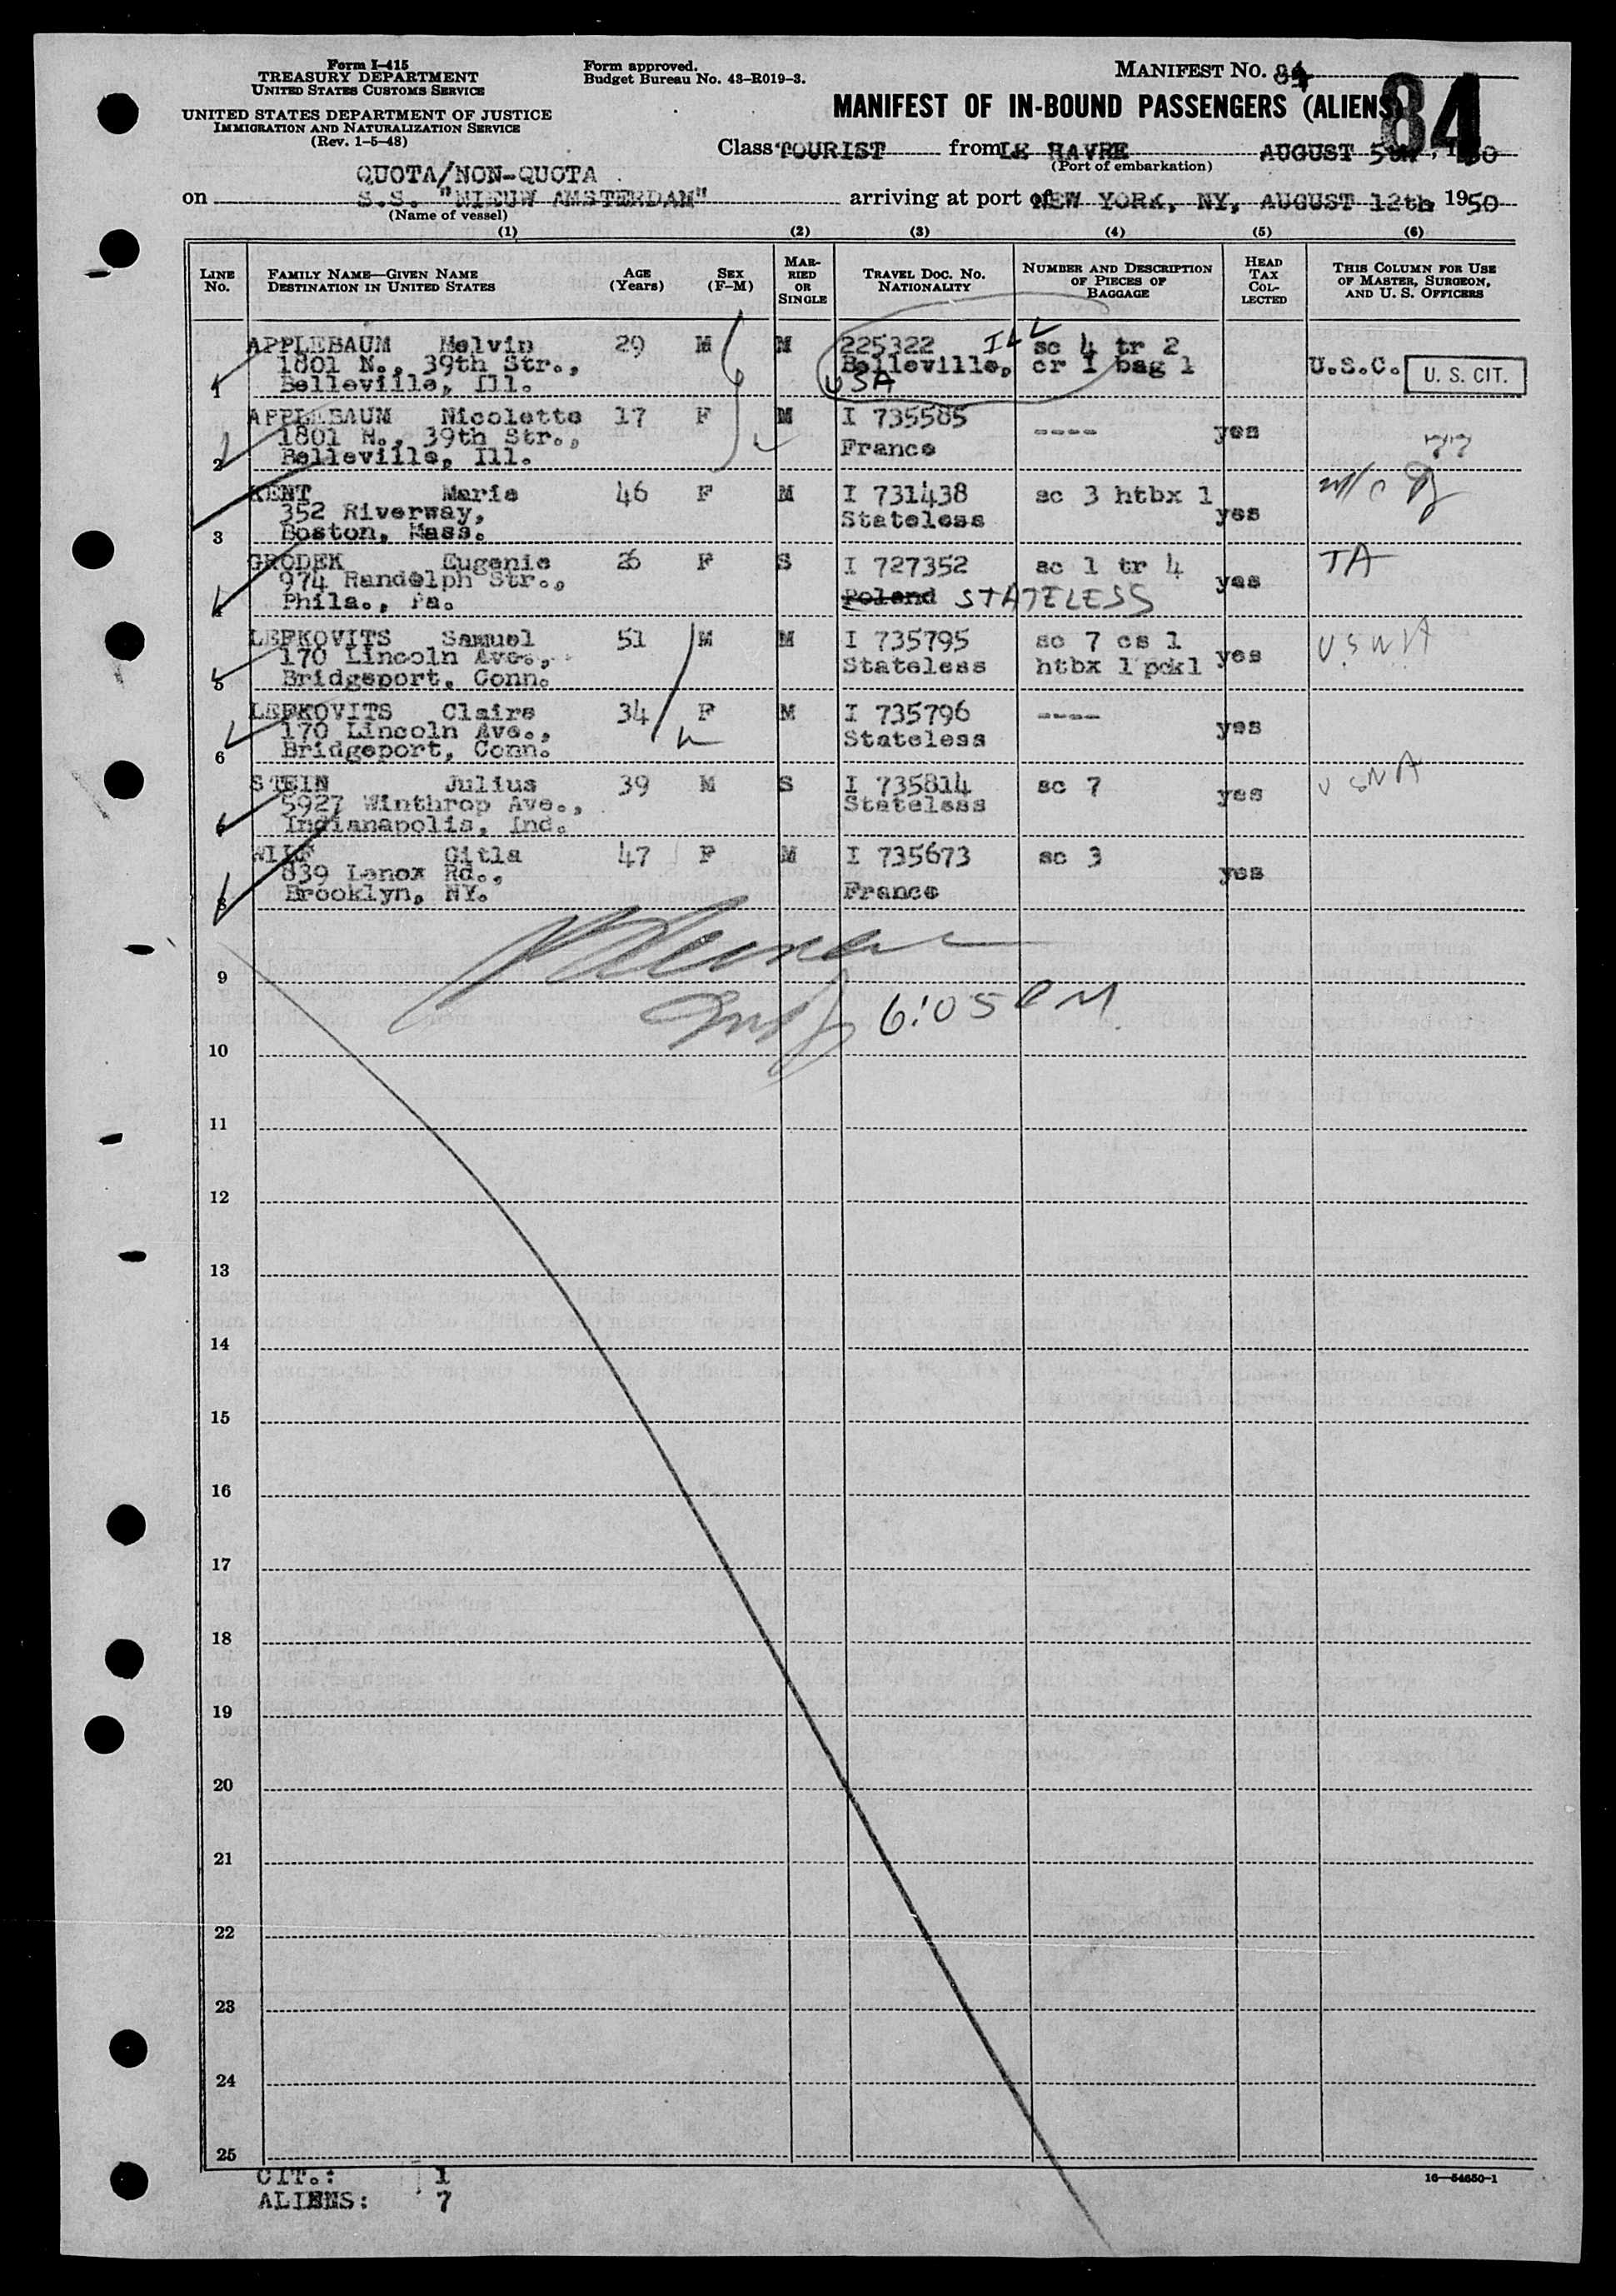 Form I-415
TREASURY DEPARTMENT
UNITED STATES CUSTOMS SERVICE
UNITED STATES DEPARTMENT OF JUSTICE
IMMIGRATION AND NATURALIZATION SERVICE
(Rev. 1-5-48)
Form approved.
Budget Bureau No. 43-R019-3.
MANIFEST NO. 84
84
MANIFEST OF IN-BOUND PASSENGERS (ALIENS)
Class TOURIST from LE HAVRE AUGUST 5th, 1950
(Port of embarkation)
QUOTA/NON-QUOTA
on S.S. "NIEUW AMSTERDAM" arriving at port of NEW YORK, NY, AUGUST 12th 1950
(Name of vessel)
(1) (2) (3) (4) (5) (6)
LINE NO. FAMILY NAME—GIVEN NAME DESTINATION IN UNITED STATES AGE (Years) SEX (F-M) MARRIED OR SINGLE TRAVEL DOC. NO. NATIONALITY NUMBER AND DESCRIPTION OF PIECES OF BAGGAGE HEAD TAX COLLECTED THIS COLUMN FOR USE OF MASTER, SURGEON, AND U. S. OFFICERS
APPLEBAUM Melvin 29 M M 225322 ILL sc 4 tr 2
1801 N., 39th Str., Belleville, cr 1 bag 1 U.S.C. U. S. CIT.
1 Belleville, Ill. USA
APPLEBAUM Nicolette 17 F M I 735585
1801 N., 39th Str., ---- yes
2 Belleville, Ill. France
KENT Marie 46 F M I 731438 sc 3 htbx 1
352 Riverway, Stateless yes
3 Boston, Mass.
GRODEK Eugenie 26 F S I 727352 sc 1 tr 4 TA
974 Randolph Str., yes
4 Phila., Pa. Poland STATELESS
LEFKOVITS Samuel 51 M M I 735795 sc 7 cs 1 USNA
170 Lincoln Ave., Stateless htbx 1 pck1 yes
5 Bridgeport, Conn.
LEFKOVITS Claire 34 F M I 735796 ----
170 Lincoln Ave., Stateless yes
6 Bridgeport, Conn.
STEIN Julius 39 M S I 735814 sc 7 yes USNA
5927 Winthrop Ave., Stateless
7 Indianapolis, Ind.
WILF Gitla 47 F M I 735673 sc 3
839 Lenox Rd., yes
8 Brooklyn, NY. France
9
6:05 PM
10
11
12
13
14
15
16
17
18
19
20
21
22
23
24
25
CIT.: 1
ALIENS: 7
16—54650-1